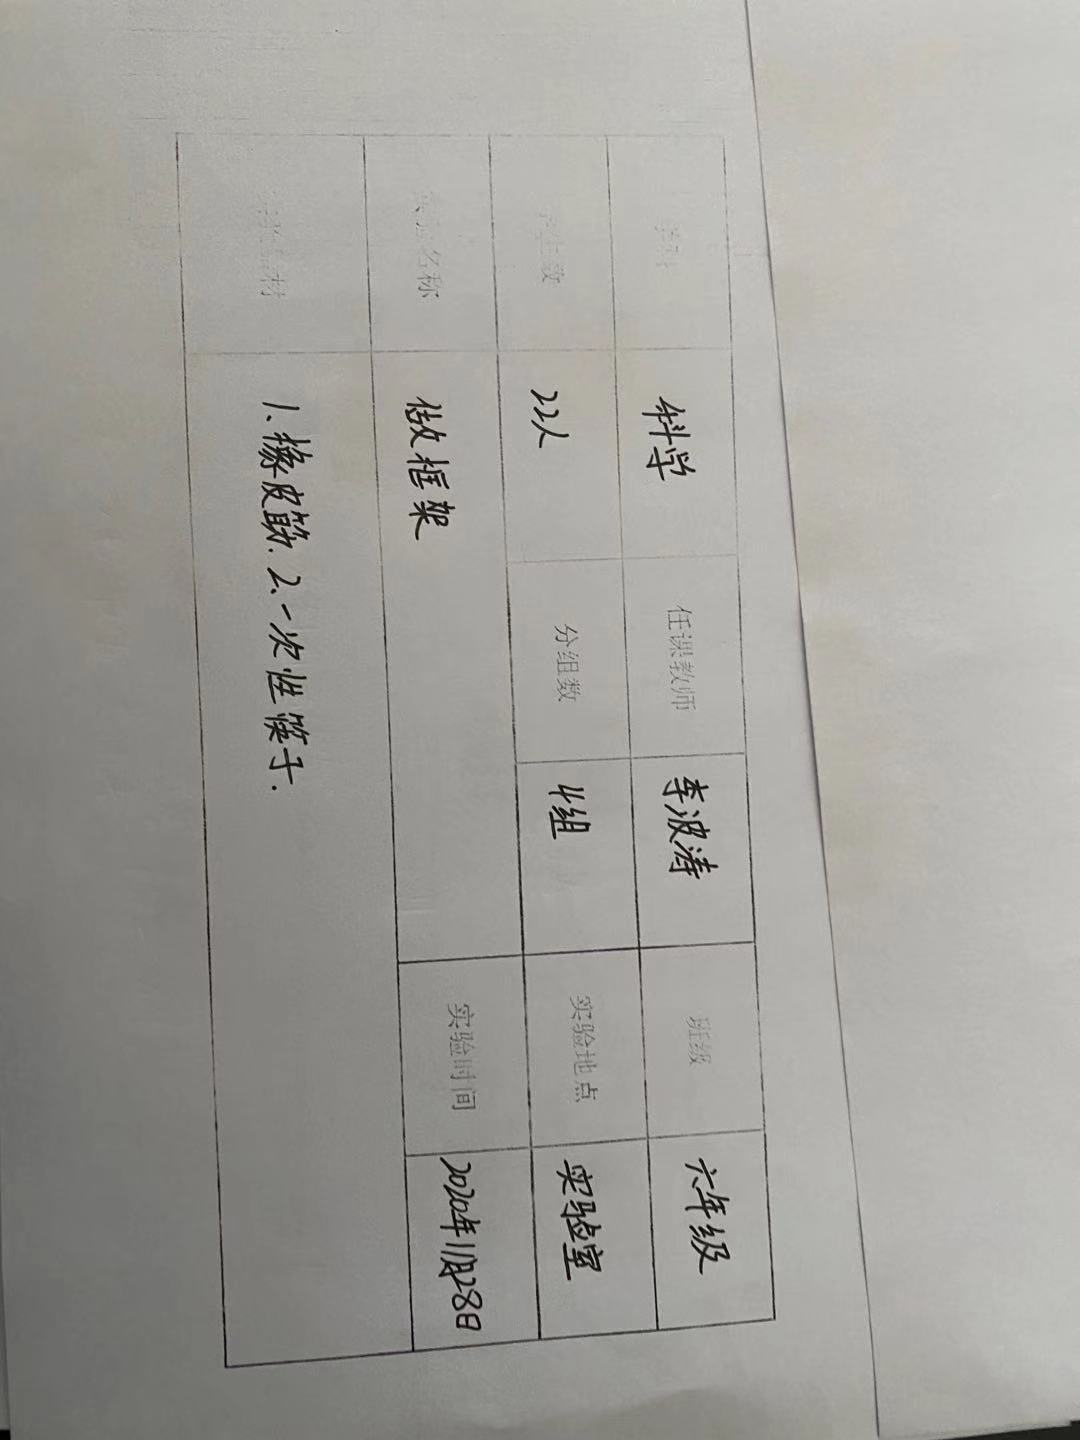 学科 科学 任课教师 李波涛 班级 六年级
学生数 22人 分组数 4组 实验地点 实验室
实验名称 做框架 实验时间 2020年11月28日
器材 1、橡皮筋.2、一次性筷子.